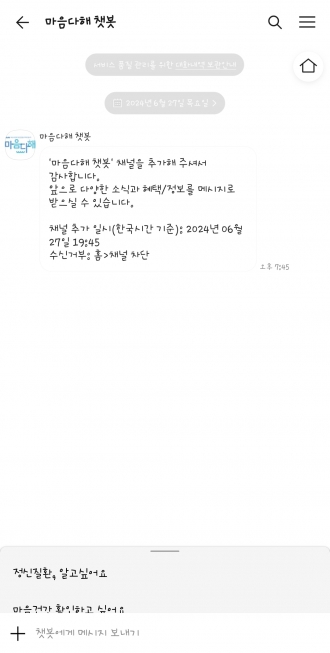 마음다해 챗봇
서비스 품질 관리를 위한 대화내용 보관안내
2024년 6월 27일 목요일 >
마음다해
마음다해 챗봇
'마음다해 챗봇' 채널을 추가해 주셔서
감사합니다.
앞으로 다양한 소식과 혜택/정보를 메시지로
받으실 수 있습니다.
채널 추가 일시(한국시간 기준): 2024년 06월
27일 19:45
수신거부: 홈>채널 차단
오후 7:45
정신질환, 알고싶어요
마음건강 확인하고 싶어요
챗봇에게 메시지 보내기